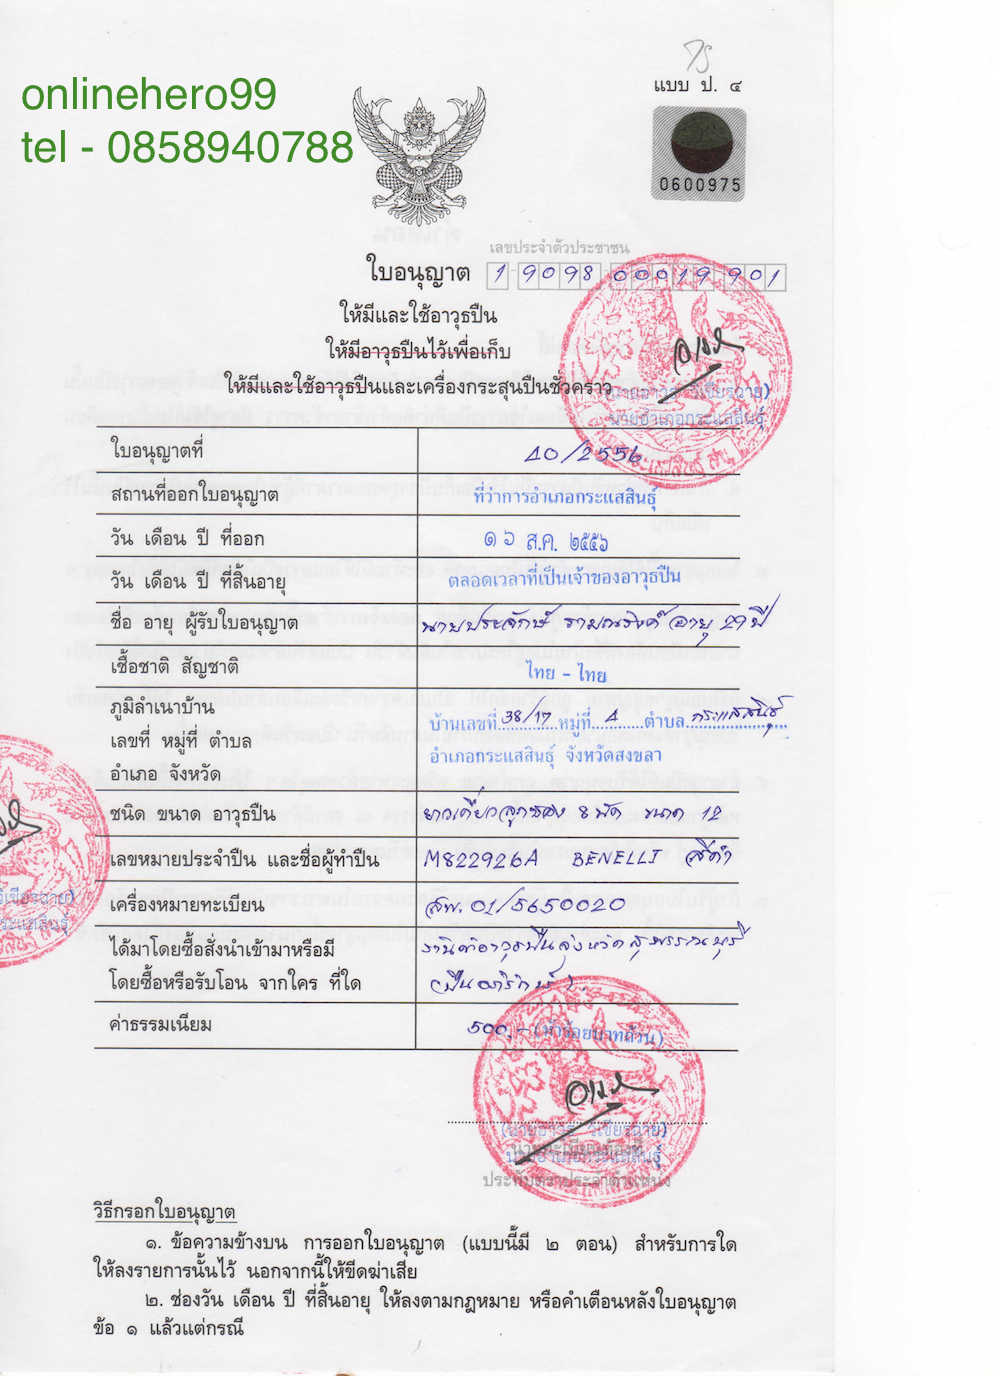 onlinehero99
tel - 0858940788
แบบ ป. ๔
0600975
เลขประจำตัวประชาชน
ใบอนุญาต 1 9098 00019 901
ให้มีและใช้อาวุธปืน
ให้มีอาวุธปืนไว้เพื่อเก็บ
ให้มีและใช้อาวุธปืนและเครื่องกระสุนปืนชั่วคราว
นายอำเภอกระแสสินธุ์
ใบอนุญาตที่ 40/2556
สถานที่ออกใบอนุญาต ที่ว่าการอำเภอกระแสสินธุ์
วัน เดือน ปี ที่ออก ๑๖ ส.ค. ๒๕๕๖
วัน เดือน ปี ที่สิ้นอายุ ตลอดเวลาที่เป็นเจ้าของอาวุธปืน
ชื่อ อายุ ผู้รับใบอนุญาต นายประจักษ์ รามณรงค์ อายุ 29 ปี
เชื้อชาติ สัญชาติ ไทย - ไทย
ภูมิลำเนาบ้าน
เลขที่ หมู่ที่ ตำบล บ้านเลขที่ 38/17 หมู่ที่ 4 ตำบล กระแสสินธุ์
อำเภอ จังหวัด อำเภอกระแสสินธุ์ จังหวัดสงขลา
ชนิด ขนาด อาวุธปืน ยาวเดี่ยวลูกซอง 8 นัด ขนาด 12
เลขหมายประจำปืน และชื่อผู้ทำปืน M822926A BENELLI สีดำ
เครื่องหมายทะเบียน สพ. 01/5650020
ได้มาโดยซื้อสั่งนำเข้ามาหรือมี ร้านค้าอาวุธปืนจังหวัดสุพรรณบุรี
โดยซื้อหรือรับโอน จากใคร ที่ใด
ค่าธรรมเนียม 500,- (ห้าร้อยบาทถ้วน)
นายอำเภอกระแสสินธุ์
ประทับตราประจำตำแหน่ง
วิธีกรอกใบอนุญาต
๑. ข้อความข้างบน การออกใบอนุญาต (แบบนี้มี ๒ ตอน) สำหรับการใด
ให้ลงรายการนั้นไว้ นอกจากนี้ให้ขีดฆ่าเสีย
๒. ช่องวัน เดือน ปี ที่สิ้นอายุ ให้ลงตามกฎหมาย หรือคำเตือนหลังใบอนุญาต
ข้อ ๑ แล้วแต่กรณี